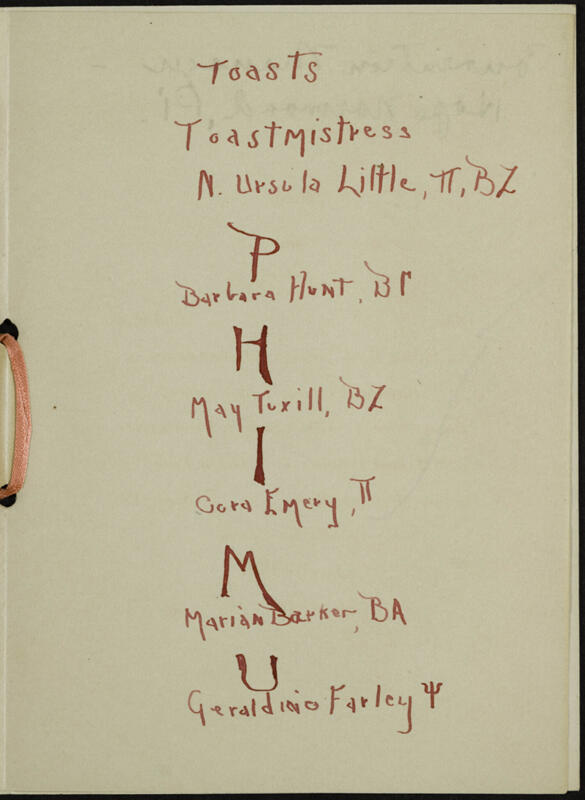 Toasts
Toastmistress
N. Ursula Little, π, BZ
P
Barbara Hunt, BΓ
H
May Tuxill, BZ
I
Cora Emery, π
M
Marian Barker, BA
U
Geraldine Farley Ψ